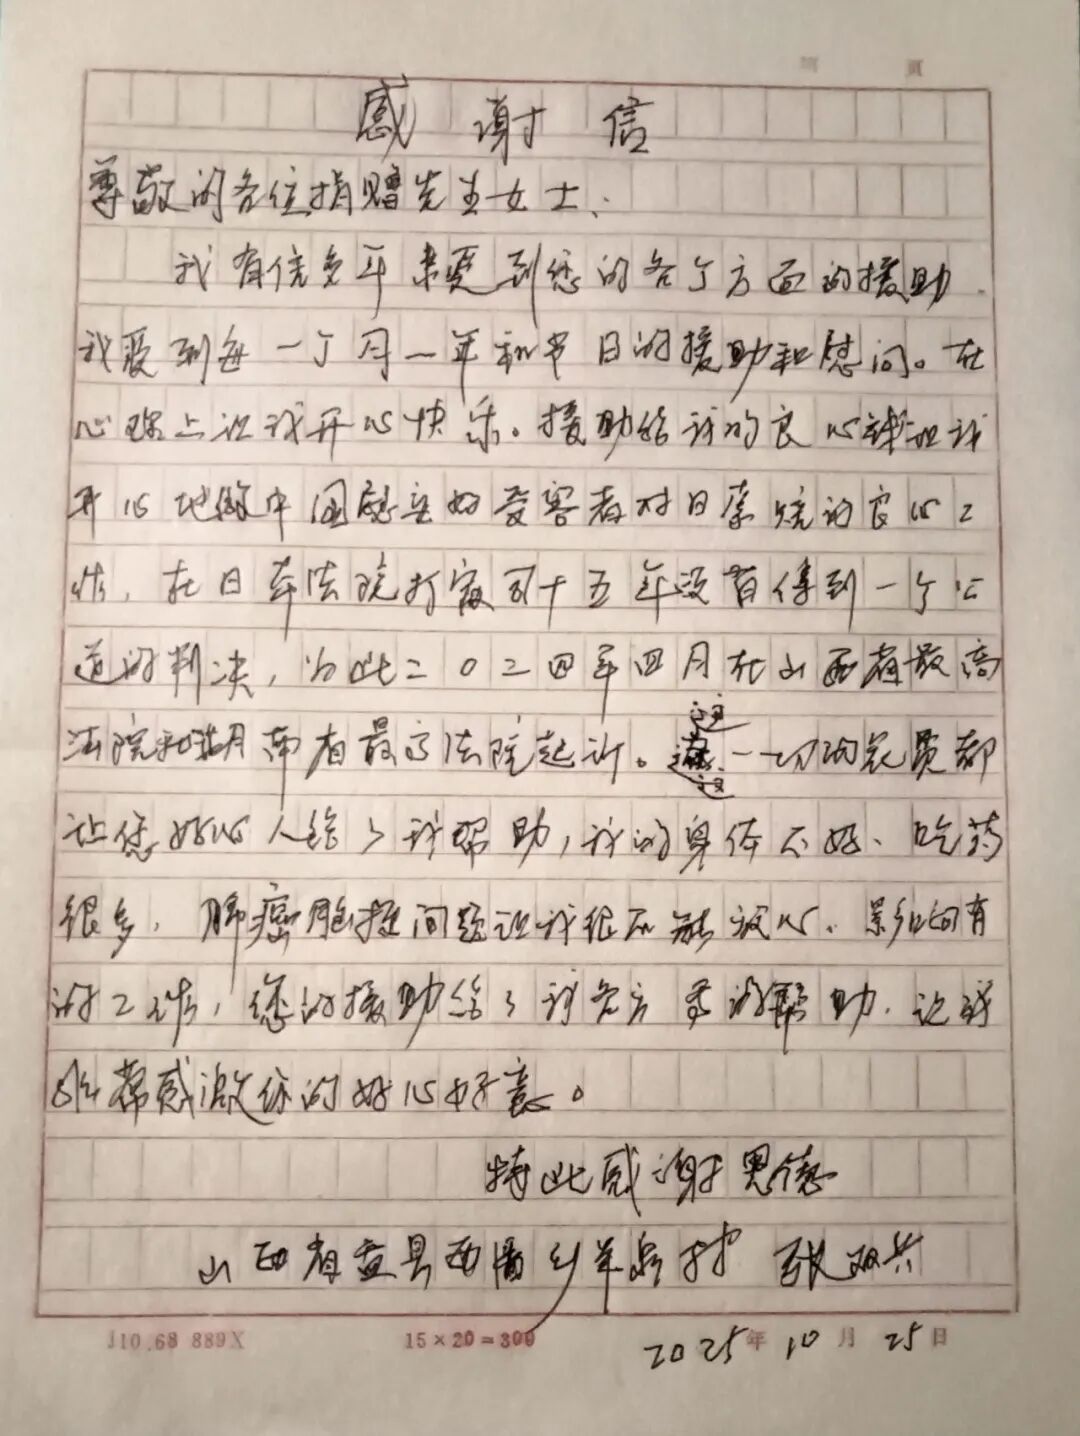 页
感谢信
尊敬的各位捐赠先生女士、
我有信多年来受到您的各个方面的援助
我受到每一个月一年和节日的援助和慰问。在
心理上让我开心快乐。援助给我的良心
开心地做中国慰安妇受害者对日索赔的良心工
作，在日本法院打官司十五年没有得到一个公
道的判决，为此二0二四年四月在山西省最高
法院和湖南省最高法院起诉。这一切的花费都
让您好心人给了我帮助，我的身体不好、吃药
很多，肺癌问题让我很不能放心、影响有
的工作，您的援助给了我各方面的帮助．让我
非常感激你的好心好意。
特此感谢恩德
山西省盂县西潘乡羊泉村 张双兵
J10.68 889X 15×20=300
2025年10月25日